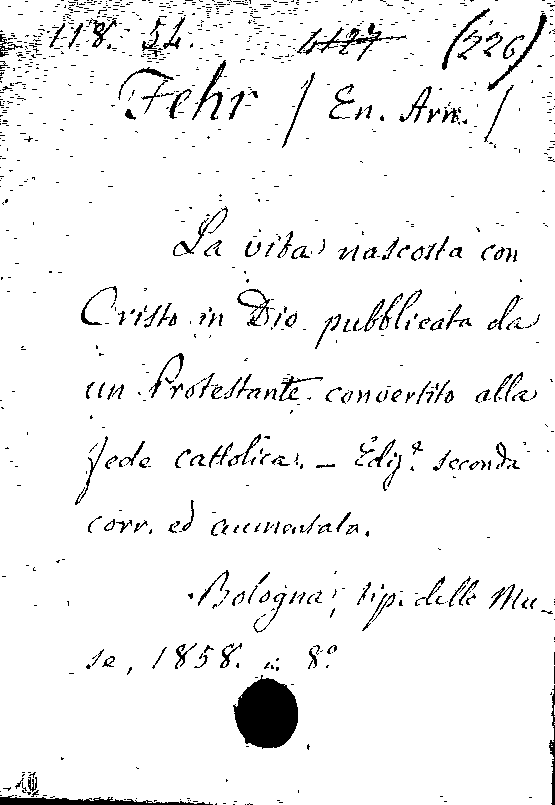 118. 54. 4127 (226)
Fehr / En. Arn. /
La vita nascosta con
Cristo in Dio pubblicata da
un Protestante convertito alla
fede cattolica. – Ediz.e seconda
corr. ed aumentata.
Bologna, tip. delle Mu-
se, 1858. in 8.o